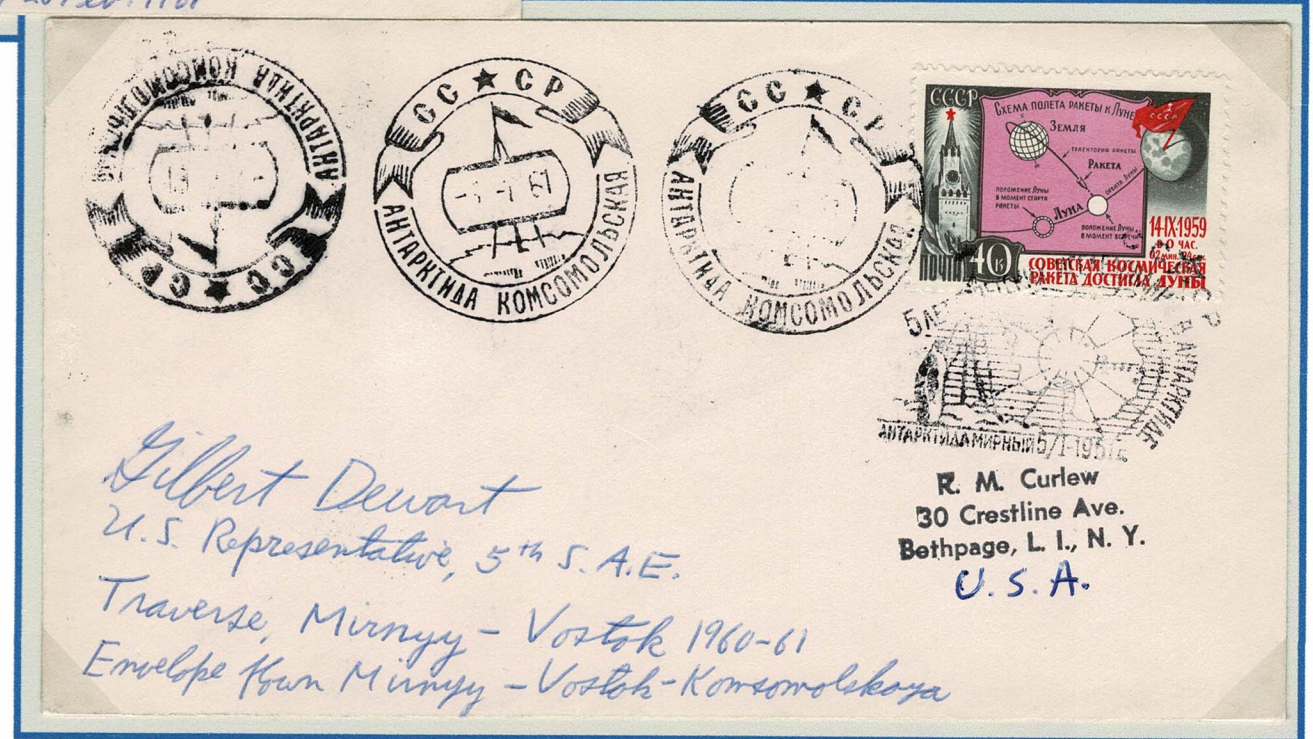 СС ★ СР
АНТАРКТИДА КОМСОМОЛЬСКАЯ
СС ★ СР
АНТАРКТИДА КОМСОМОЛЬСКАЯ
СС ★ СР
АНТАРКТИДА КОМСОМОЛЬСКАЯ
СССР
СХЕМА ПОЛЕТА РАКЕТЫ К ЛУНЕ
СССР
ЗЕМЛЯ
ТРАЕКТОРИЯ РАКЕТЫ
РАКЕТА
ОРБИТА ЛУНЫ
ПОЛОЖЕНИЕ ЛУНЫ
В МОМЕНТ СТАРТА
РАКЕТЫ
ЛУНА
ПОЛОЖЕНИЕ ЛУНЫ
В МОМЕНТ ВСТРЕЧИ
14·IX·1959
В 0 ЧАС.
02 МИН. 24 СЕК.
ПОЧТА 40 К
СОВЕТСКАЯ КОСМИЧЕСКАЯ
РАКЕТА ДОСТИГЛА ЛУНЫ
5 ЛЕТ
В АНТАРКТИДЕ
АНТАРКТИДА МИРНЫЙ 5/I-1961
R. M. Curlew
30 Crestline Ave.
Bethpage, L. I., N. Y.
U. S. A.
Gilbert Dewart
U.S. Representative, 5th S.A.E.
Traverse, Mirnyy - Vostok 1960-61
Envelope flown Mirnyy - Vostok - Komsomolskaya